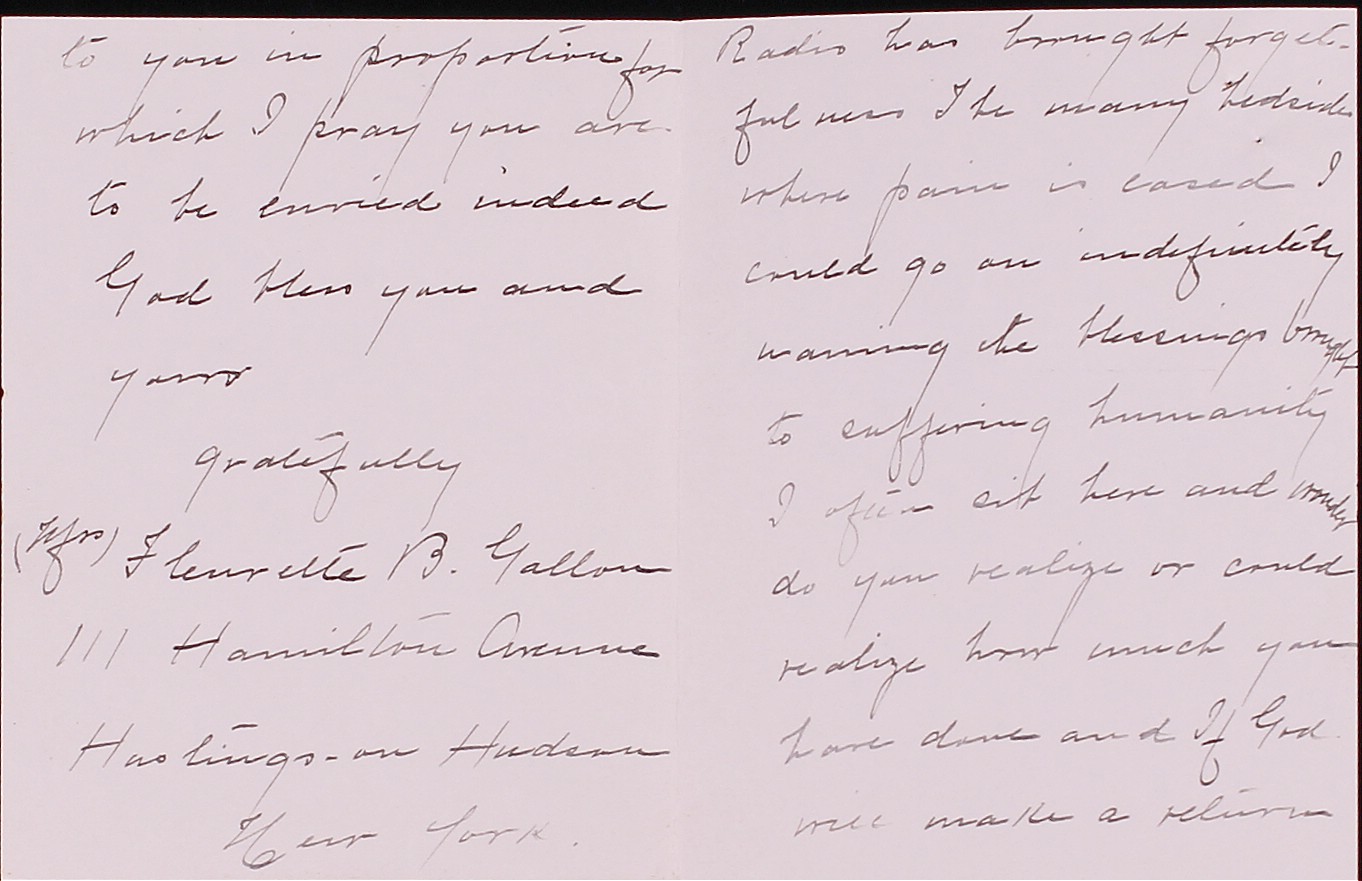 Radio has brought forget-
fulness The many bedsides
where pain is eased I
could go on indefinitely
naming the blessings brought
to suffering humanity
I often sit here and wonder
do you realize or could
realize how much you
have done and If God
will make a return
to you in proportion for
which I pray you are
to be envied indeed
God bless you and
yours
gratefully
(Mrs) Fleurette B. Gallon
111 Hamilton Avenue
Hastings-on Hudson
New York.